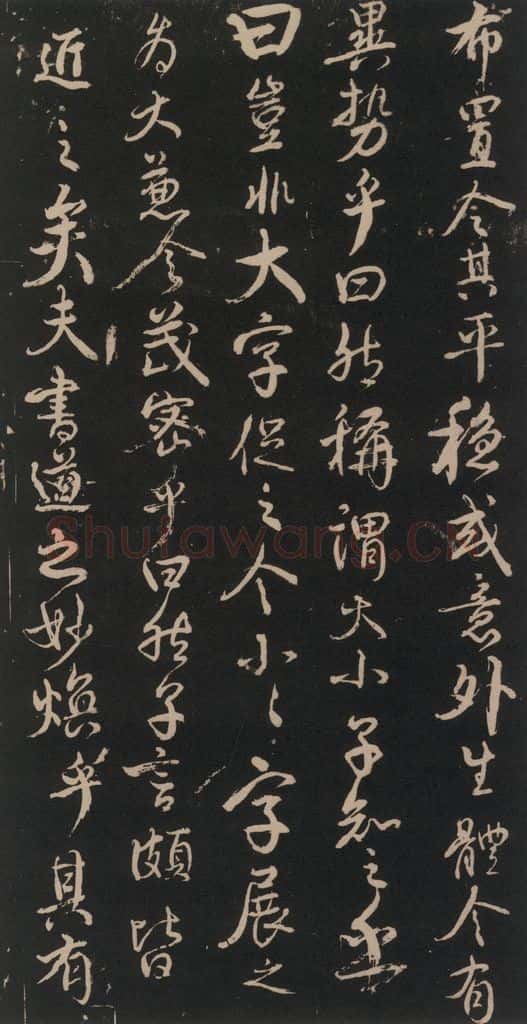 布置令其平穩或意外生體令有
異勢乎曰然稱謂大小子知之乎
曰豈非大字促之令小々字展之
為大兼令茂密乎曰然子言頗皆
近之矣夫書道之妙煥乎其有
Shufawang.cn